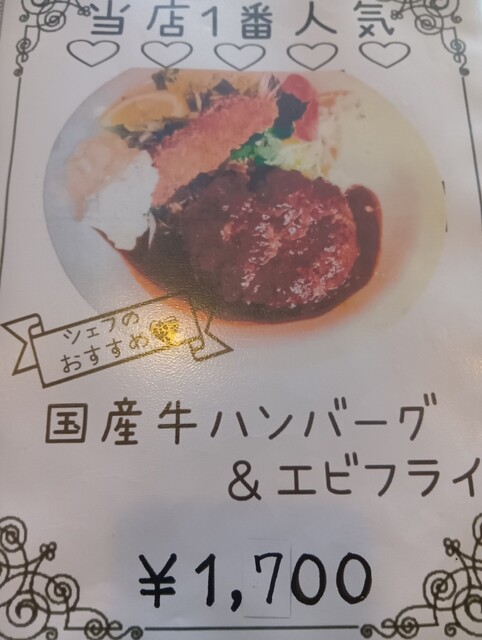 当店1番人気
シェフの
おすすめ
国産牛ハンバーグ
&エビフライ
¥1,700